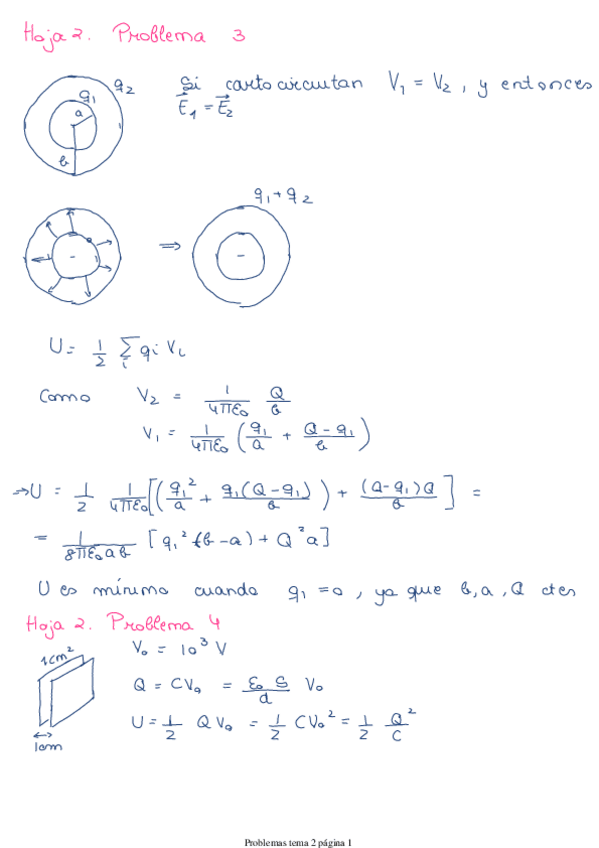 Hoja 2. Problema 3
q₁ q₂
a
b
Si cortocircuitan V₁ = V₂, y entonces
E⃗₁ = E⃗₂
q₁+q₂
- ⇒ -
U = 1/2 Σᵢ qi Vi
Como V₂ = 1/4πε₀ Q/b
V₁ = 1/4πε₀ (q₁/a + Q-q₁/b)
⇒U = 1/2 1/4πε₀ [(q₁²/a + q₁(Q-q₁)/b) + (Q-q₁)Q/b] =
= 1/8πε₀ab [q₁²(b-a) + Q²a]
U es mínimo cuando q₁=0, ya que b, a, Q ctes
Hoja 2. Problema 4
1cm²
1cm
V₀ = 10³ V
Q = CV₀ = ε₀ S/d V₀
U = 1/2 QV₀ = 1/2 CV₀² = 1/2 Q²/C
Problemas tema 2 página 1